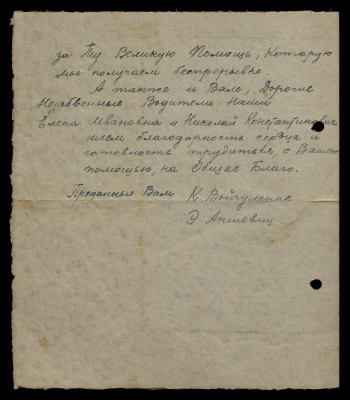 за Ту Великую Помощь, Которую
мы получаем беспрерывно.
А также и Вам, Дорогие
Незабвенные Водители Наши
Елена Ивановна и Николай Константинович
шлем благодарность сердца и
готовность трудиться, с Вашей
помощью, на Общее Благо.
Преданные Вам К. Войчуленас
Э.